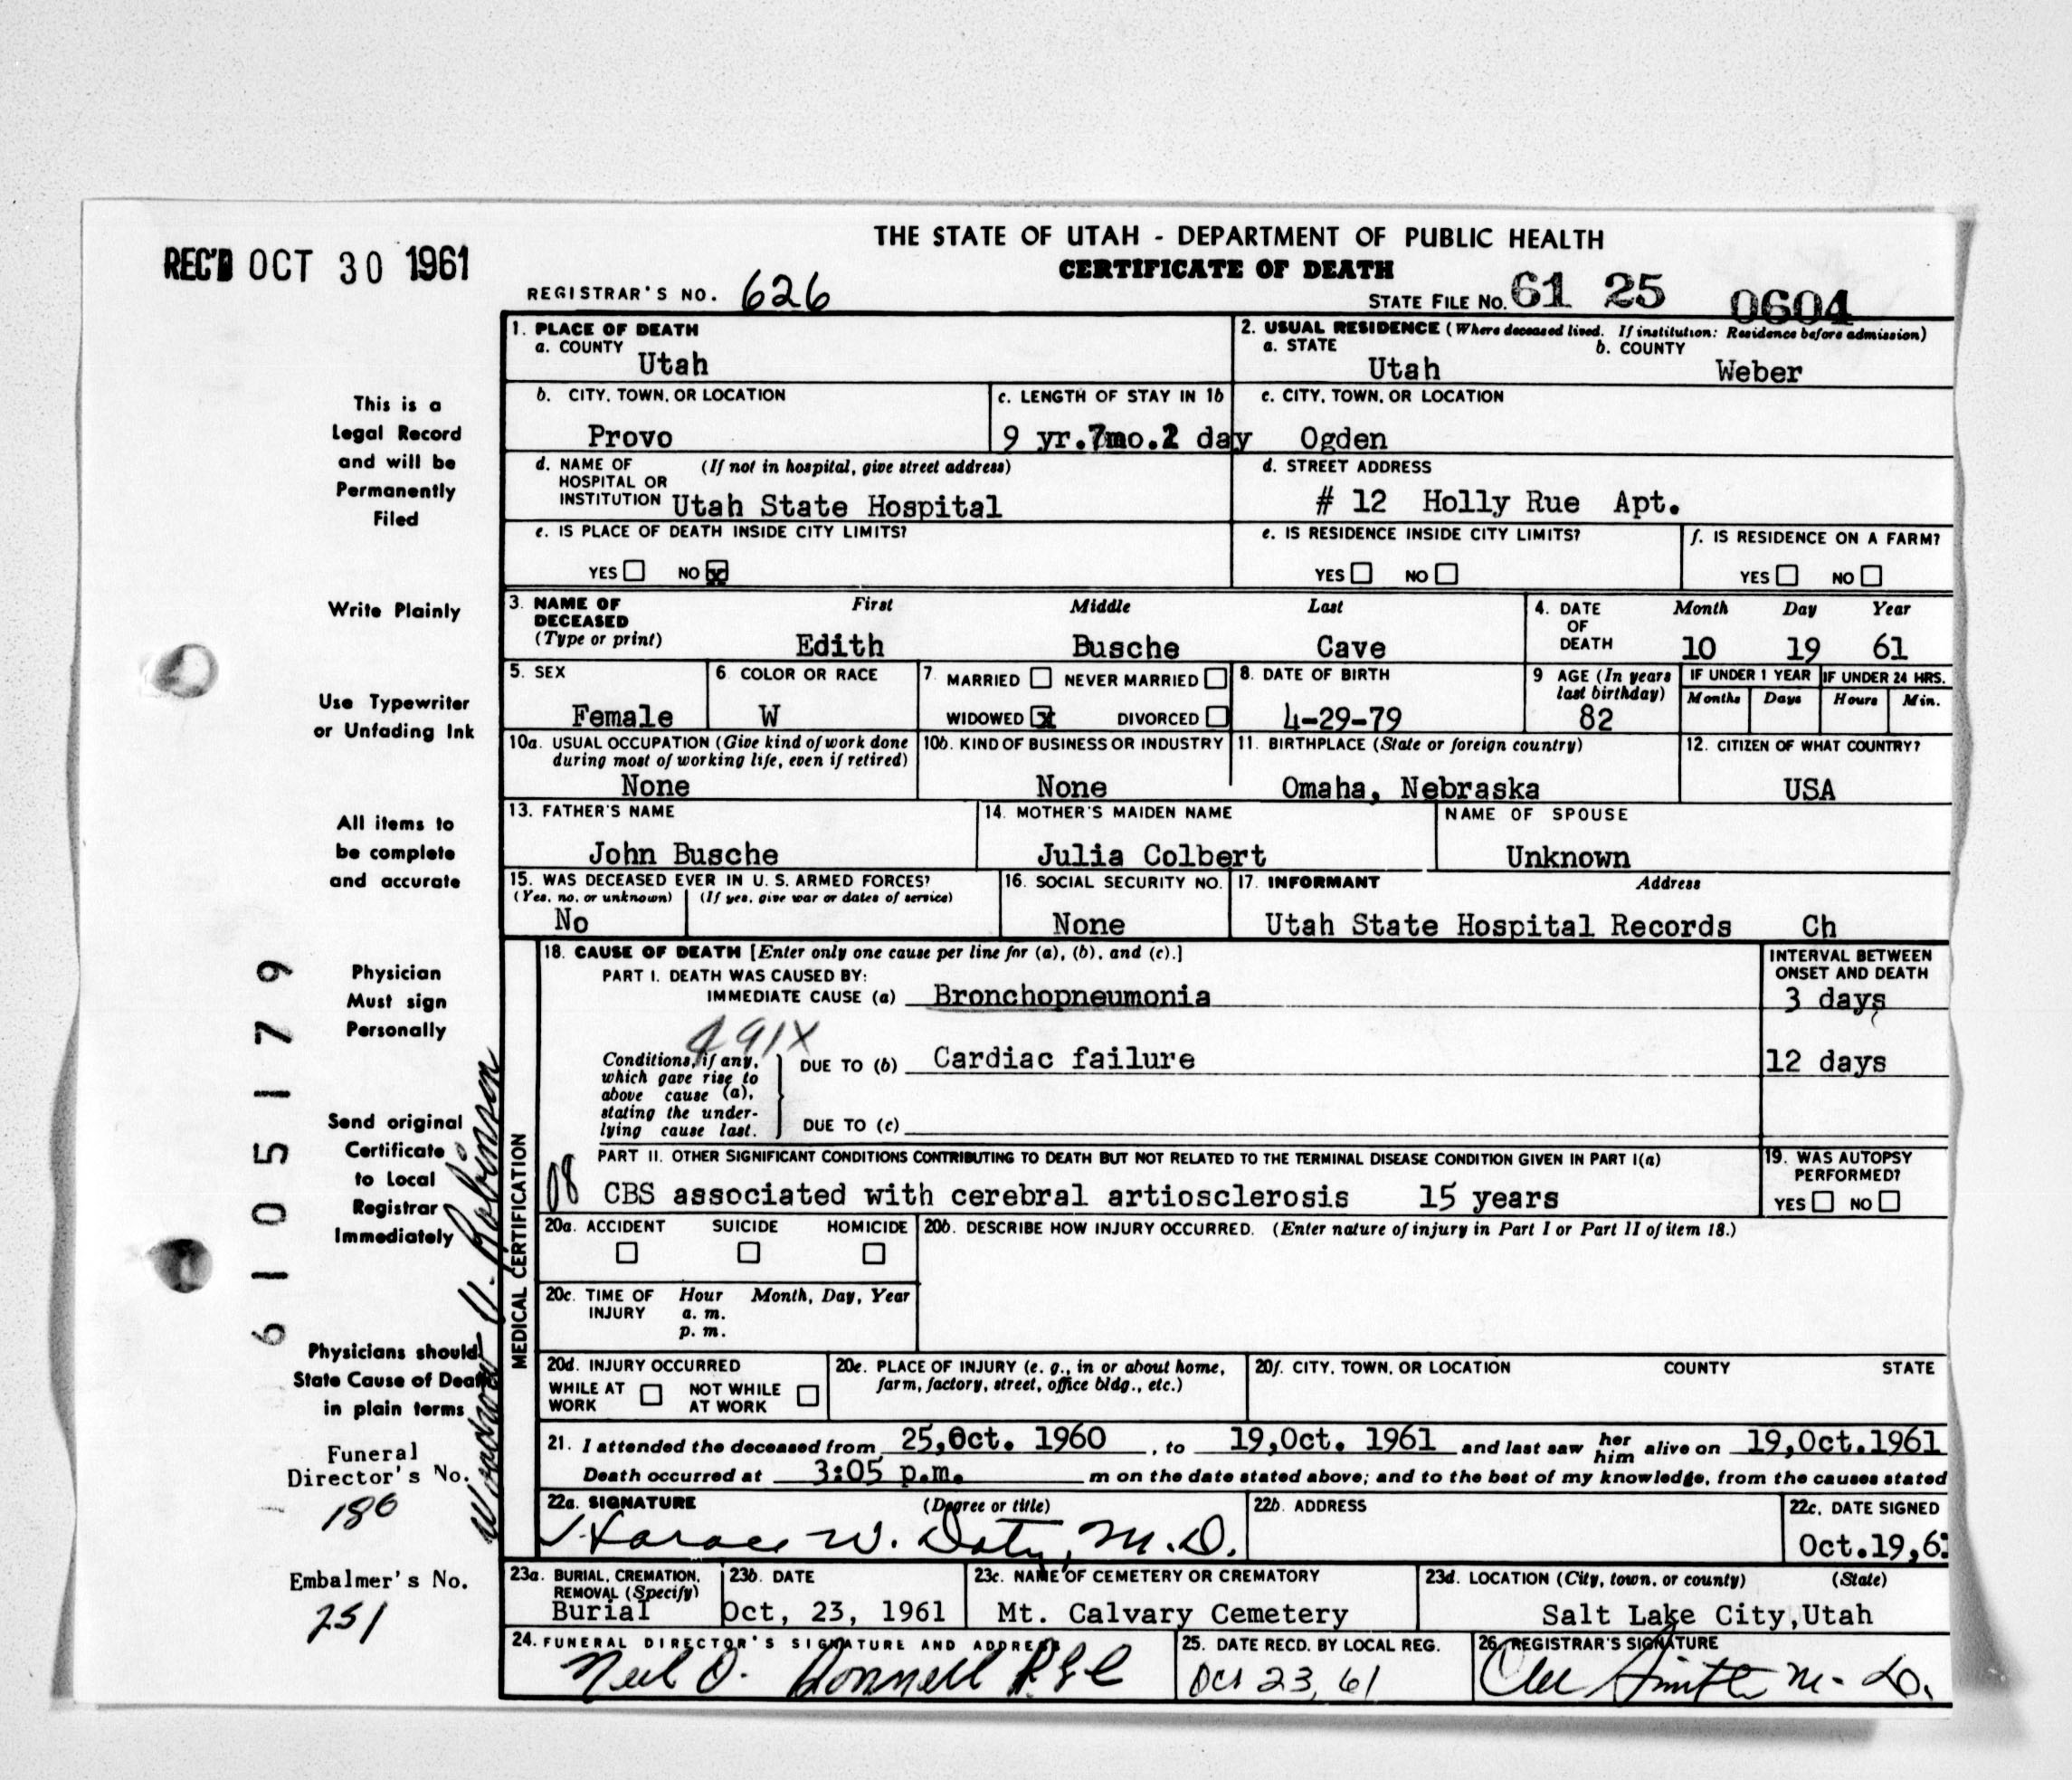 THE STATE OF UTAH - DEPARTMENT OF PUBLIC HEALTH
CERTIFICATE OF DEATH
REC'D OCT 30 1961
REGISTRAR'S NO. 626
STATE FILE NO. 61 25 0604
1. PLACE OF DEATH
a. COUNTY
Utah
2. USUAL RESIDENCE (Where deceased lived. If institution: Residence before admission)
a. STATE
Utah
b. COUNTY
Weber
b. CITY, TOWN, OR LOCATION
Provo
c. LENGTH OF STAY IN 1b
9 yr.7mo.2 day
c. CITY, TOWN, OR LOCATION
Ogden
d. NAME OF (If not in hospital, give street address)
HOSPITAL OR
INSTITUTION Utah State Hospital
d. STREET ADDRESS
# 12 Holly Rue Apt.
e. IS PLACE OF DEATH INSIDE CITY LIMITS?
YES NO x
e. IS RESIDENCE INSIDE CITY LIMITS?
YES NO
f. IS RESIDENCE ON A FARM?
YES NO
3. NAME OF
DECEASED
(Type or print)
First Middle Last
Edith Busche Cave
4. DATE
OF
DEATH
Month Day Year
10 19 61
5. SEX
Female
6. COLOR OR RACE
W
7. MARRIED NEVER MARRIED
WIDOWED x DIVORCED
8. DATE OF BIRTH
4-29-79
9 AGE (In years
last birthday)
82
IF UNDER 1 YEAR
Months Days
IF UNDER 24 HRS.
Hours Min.
10a. USUAL OCCUPATION (Give kind of work done
during most of working life, even if retired)
None
10b. KIND OF BUSINESS OR INDUSTRY
None
11. BIRTHPLACE (State or foreign country)
Omaha, Nebraska
12. CITIZEN OF WHAT COUNTRY?
USA
13. FATHER'S NAME
John Busche
14. MOTHER'S MAIDEN NAME
Julia Colbert
NAME OF SPOUSE
Unknown
15. WAS DECEASED EVER IN U. S. ARMED FORCES?
(Yes, no, or unknown) (If yes, give war or dates of service)
No
16. SOCIAL SECURITY NO.
None
17. INFORMANT Address
Utah State Hospital Records Ch
MEDICAL CERTIFICATION
18. CAUSE OF DEATH [Enter only one cause per line for (a), (b), and (c).]
PART I. DEATH WAS CAUSED BY:
IMMEDIATE CAUSE (a) Bronchopneumonia
INTERVAL BETWEEN
ONSET AND DEATH
3 days
491X
Conditions, if any,
which gave rise to
above cause (a),
stating the under-
lying cause last.
DUE TO (b) Cardiac failure
12 days
DUE TO (c)
PART II. OTHER SIGNIFICANT CONDITIONS CONTRIBUTING TO DEATH BUT NOT RELATED TO THE TERMINAL DISEASE CONDITION GIVEN IN PART I(a)
08 CBS associated with cerebral artiosclerosis 15 years
19. WAS AUTOPSY
PERFORMED?
YES NO
20a. ACCIDENT SUICIDE HOMICIDE
20b. DESCRIBE HOW INJURY OCCURRED. (Enter nature of injury in Part I or Part II of item 18.)
20c. TIME OF Hour Month, Day, Year
INJURY a. m.
p. m.
20d. INJURY OCCURRED
WHILE AT NOT WHILE
WORK AT WORK
20e. PLACE OF INJURY (e. g., in or about home,
farm, factory, street, office bldg., etc.)
20f. CITY, TOWN, OR LOCATION COUNTY STATE
21. I attended the deceased from 25,Oct. 1960, to 19,Oct. 1961 and last saw her him alive on 19,Oct.1961
Death occurred at 3:05 p.m. m on the date stated above; and to the best of my knowledge, from the causes stated
22a. SIGNATURE (Degree or title)
Horace W. Doty, M.D.
22b. ADDRESS
22c. DATE SIGNED
Oct.19,6
23a. BURIAL, CREMATION,
REMOVAL (Specify)
Burial
23b. DATE
Oct, 23, 1961
23c. NAME OF CEMETERY OR CREMATORY
Mt. Calvary Cemetery
23d. LOCATION (City, town, or county) (State)
Salt Lake City,Utah
24. FUNERAL DIRECTOR'S SIGNATURE AND ADDRESS
Neil O. Donnell
25. DATE RECD. BY LOCAL REG.
Oct 23, 61
26. REGISTRAR'S SIGNATURE
Smith M. D.
This is a
Legal Record
and will be
Permanently
Filed
Write Plainly
Use Typewriter
or Unfading Ink
All items to
be complete
and accurate
Physician
Must sign
Personally
Send original
Certificate
to Local
Registrar
Immediately
Physicians should
State Cause of Death
in plain terms
Funeral
Director's No.
186
Embalmer's No.
251
6105179
Woodrow V. Robinson